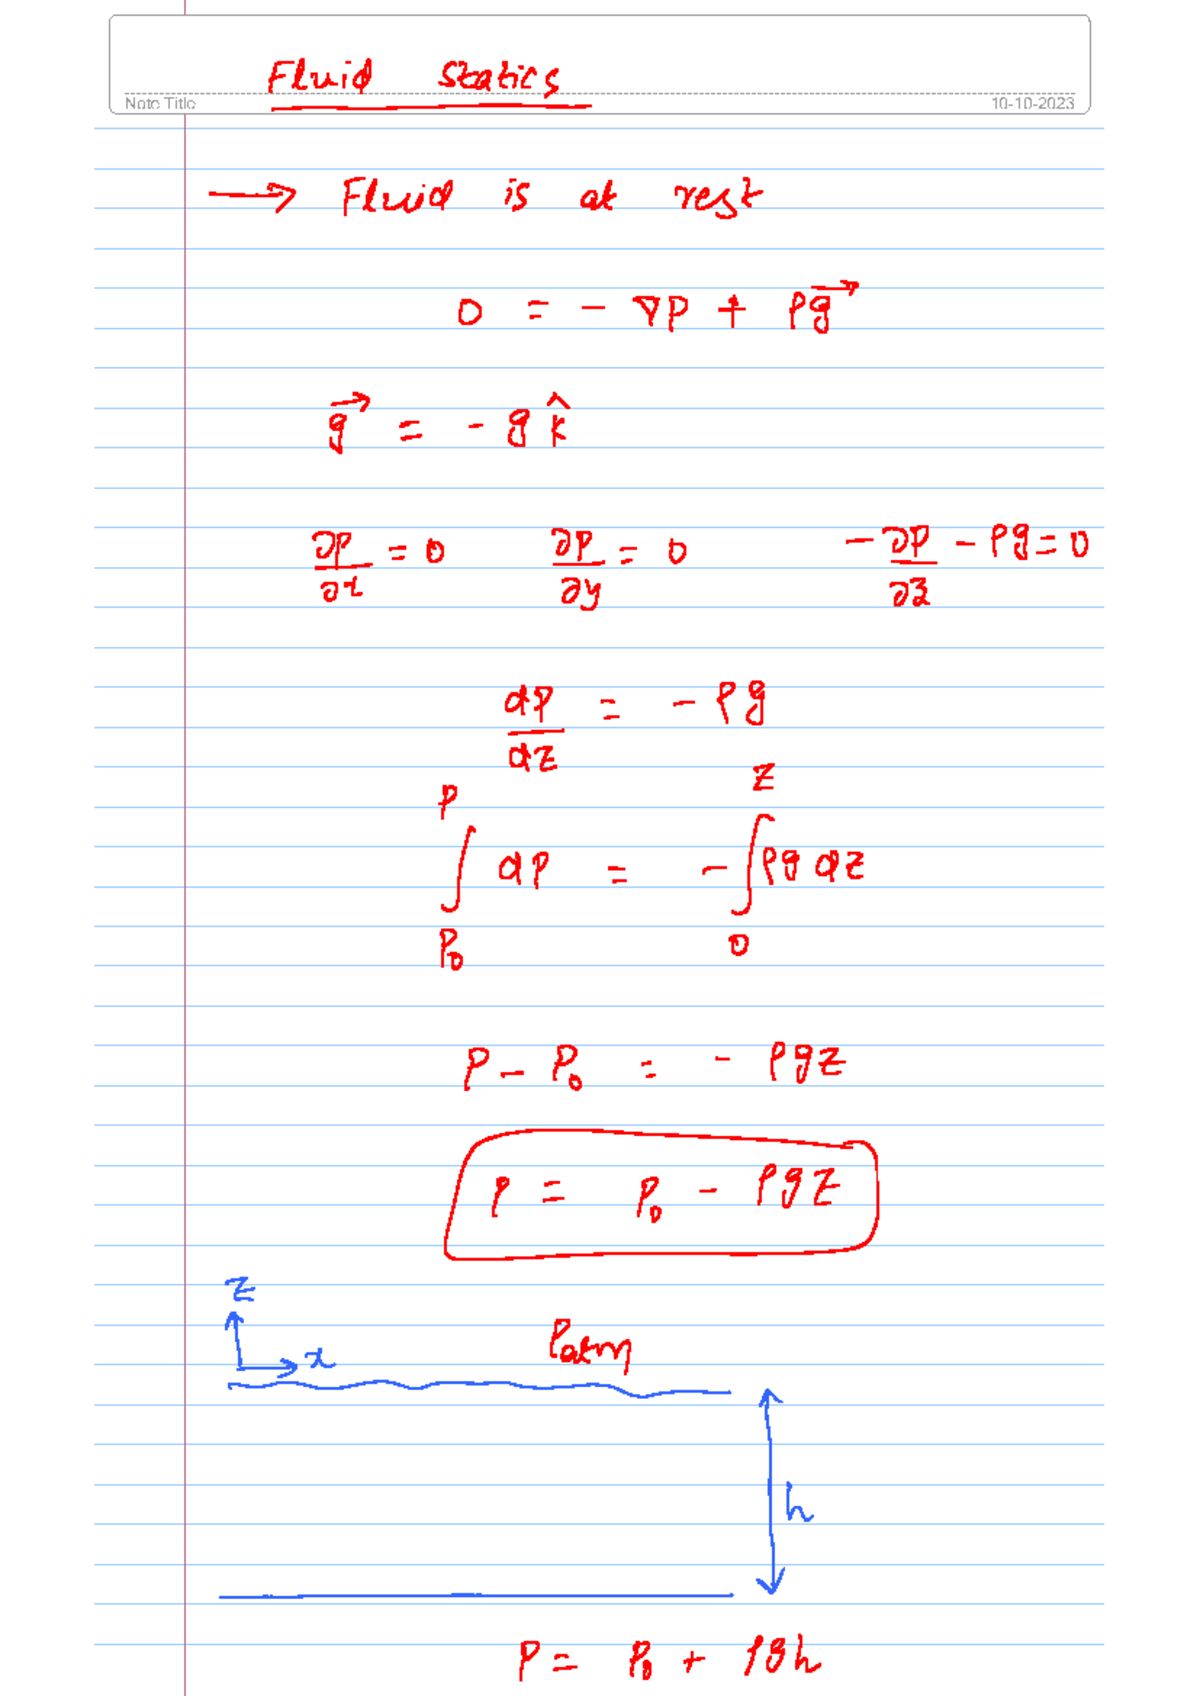 Fluid Statics
Note Title 10-10-2023
→ Fluid is at rest
0 = - ∇P + ρg⃗
g⃗ = - g k̂
∂P/∂x = 0 ∂P/∂y = 0 -∂P/∂z - ρg = 0
dP/dz = - ρg
∫_{P₀}^{P} dP = - ∫_{0}^{z} ρg dz
P - P₀ = - ρgz
P = P₀ - ρgz
z
x
Patm
h
P = P₀ + ρgh